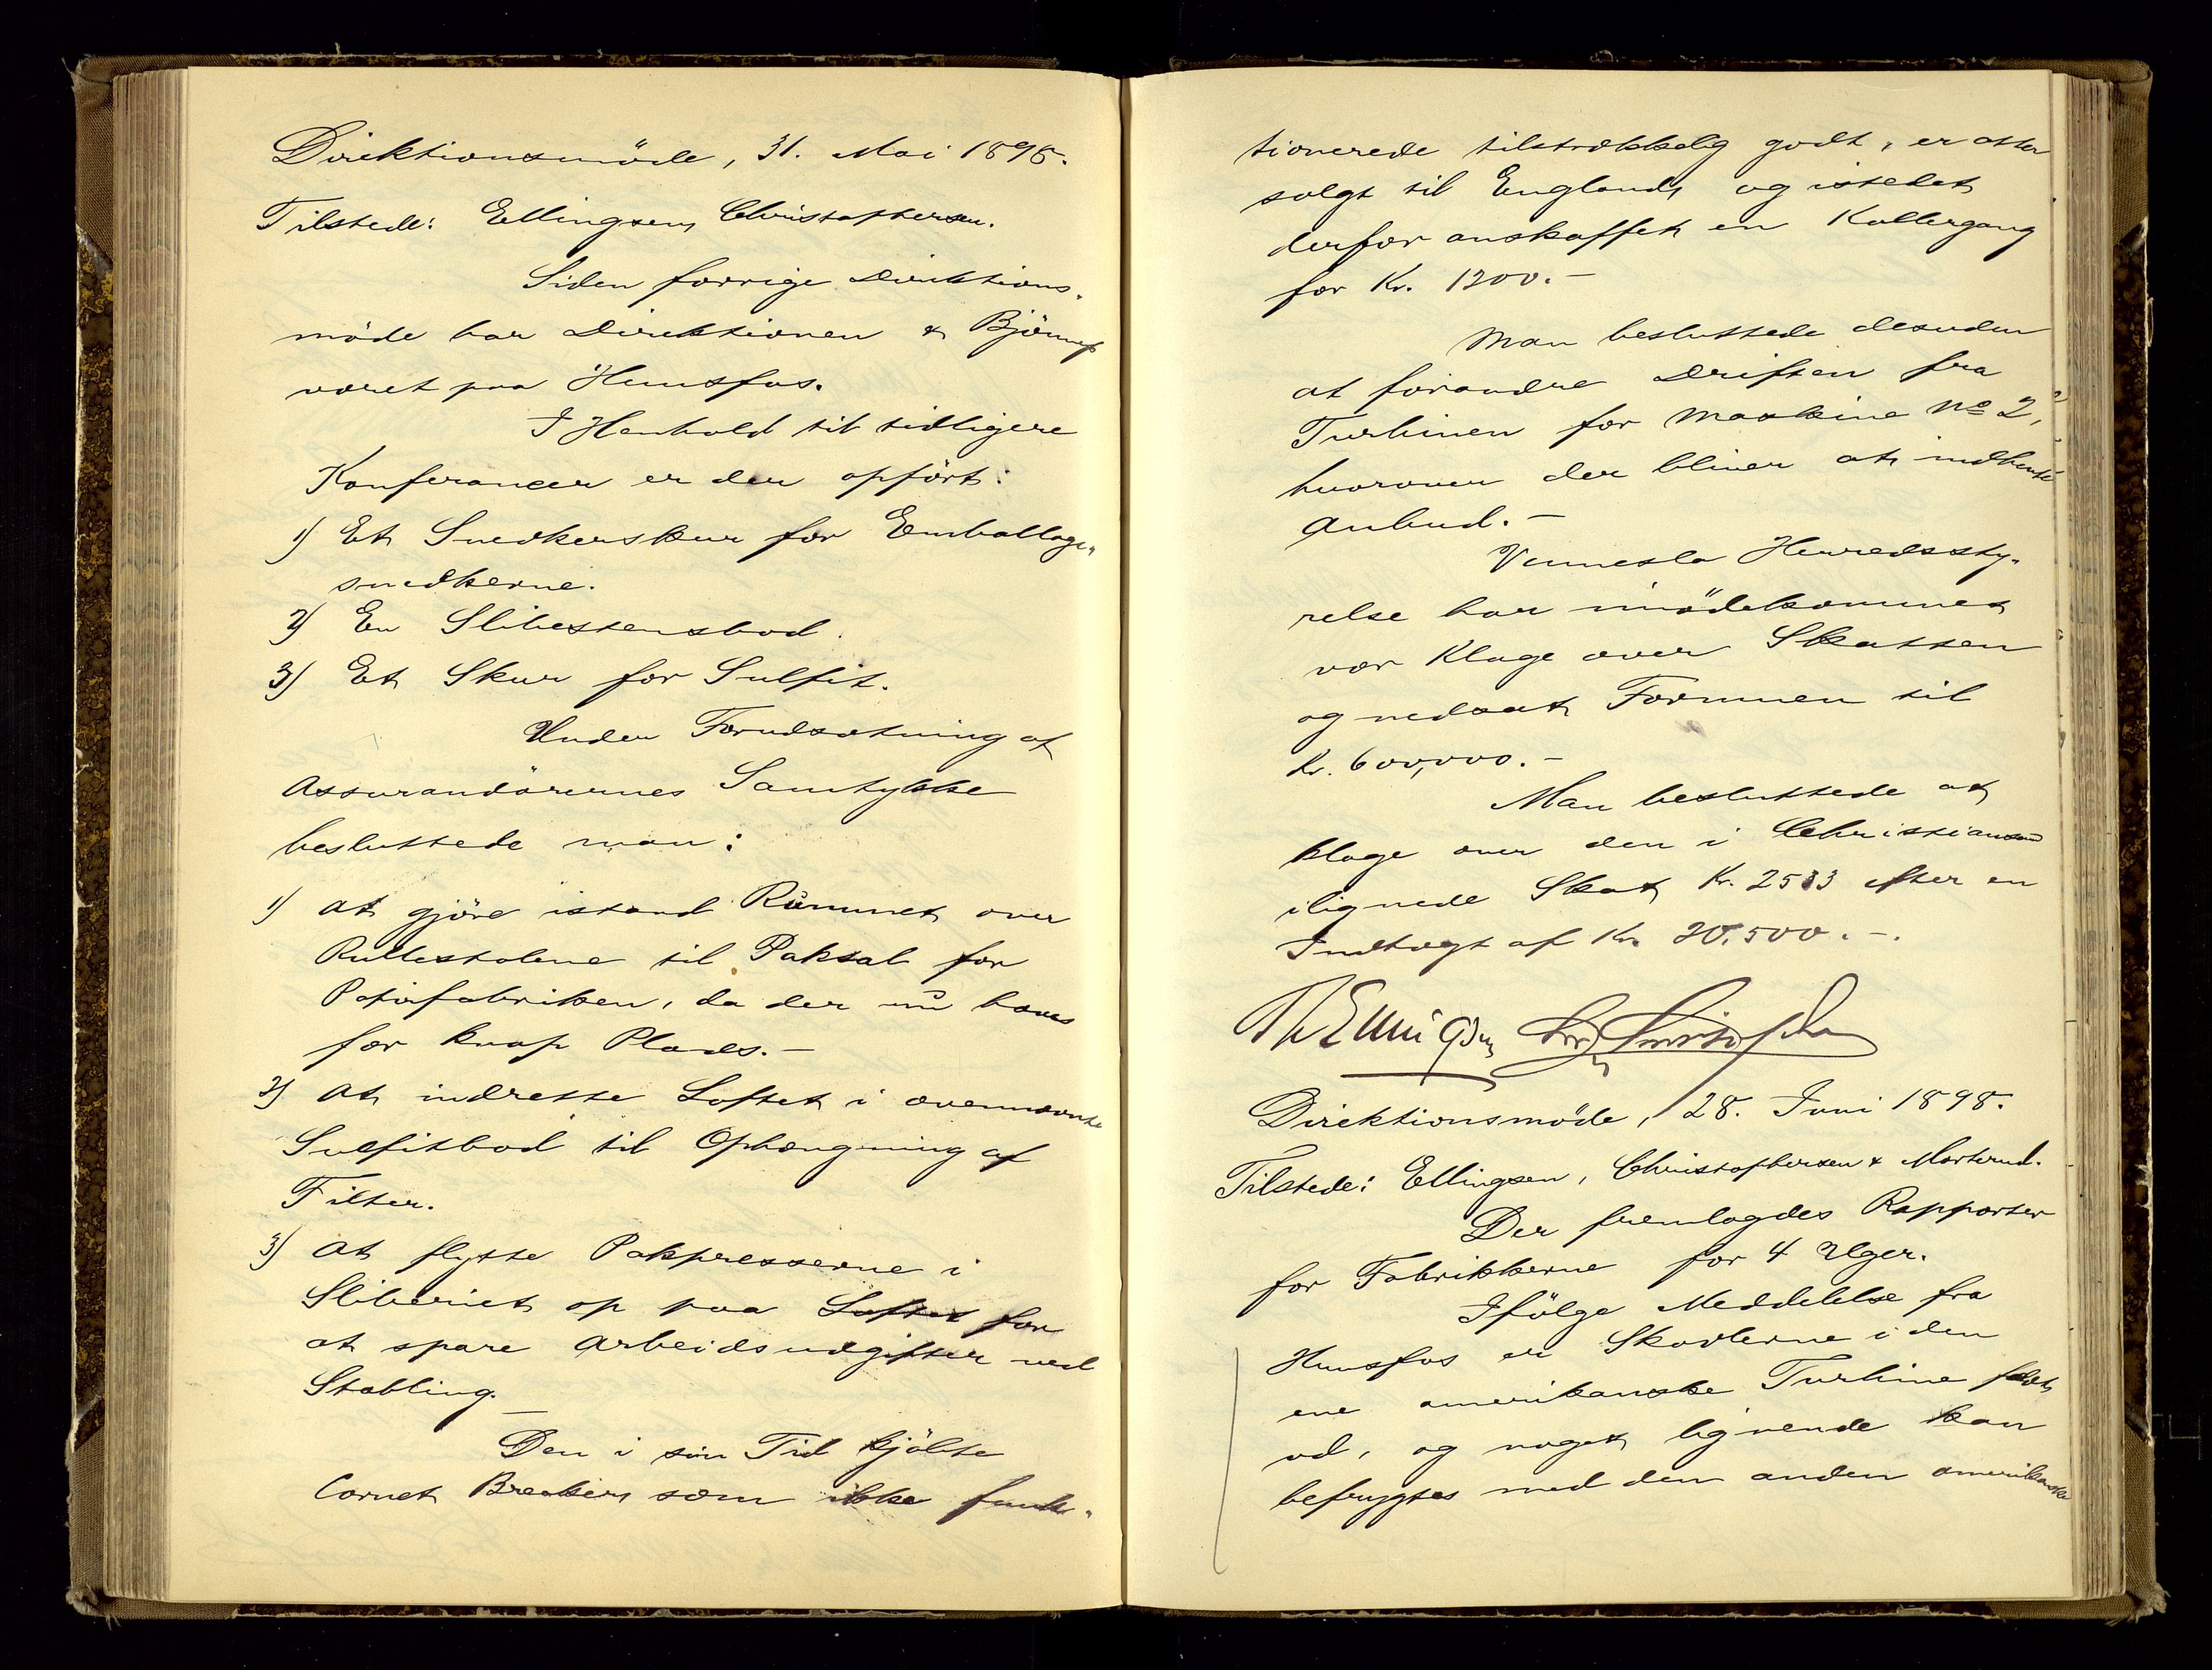 Direktionsmöde, 31. Mai 1898.
Tilstede: Ellingsen, Christophersen.
Siden forrige Direktions-
möde har Direktionen &
været paa Hunsfos.
I Henhold til tidligere
Konferancer er der opfört:
1) Et Snedkerskur for Emballage-
snedkerne.
2) En Slibestensbod.
3) Et Skur for Sulfit.
Under Forudsætning af
Assurandörernes Samtykke
besluttede man:
1) at gjöre istand Rummet over
Rullestolene til Paksal for
Papirfabriken, da der nu haves
for knap Plads.-
2) at indrette Loftet i ovennævnte
Sulfitbod til Ophængning af
Filter.
3) at flytte Pakpresserne i
Sliberiet op paa Loftet for
at spare Arbeidsudgifter ved
Stabling.-
Den i sin Tid kjöbte
Cornet Breaker, som ikke funk-
tionerede tilstrækkelig godt, er atter
solgt til England, og istedet
derfor anskaffet en Kollergang
for Kr. 1200.-
Man besluttede desuden
at forandre Driften fra
Turbinen for Maskine No 2,
hvorover der bliver at indhente
Anbud.-
Vennesla Herredssty-
relse har imödekommet
vor Klage over Skatten
og nedsat Formuen til
Kr. 600,000.-
Man besluttede at
klage over den i Christiansand
ilignede Skat Kr. 2533 efter en
Indtægt af Kr. 20,500.-.
Th Ellingsen
Direktionsmöde, 28. Juni 1898.
Tilstede: Ellingsen, Christophersen & Morterud.
Der fremlagdes Rapporter
for Fabrikkerne for 4 Uger.
Ifölge Meddelelse fra
Hunsfos er Skovlerne i den
ene amerikanske Turbine faldt
ud, og noget lignende kan
befrygtes med den anden amerikanske